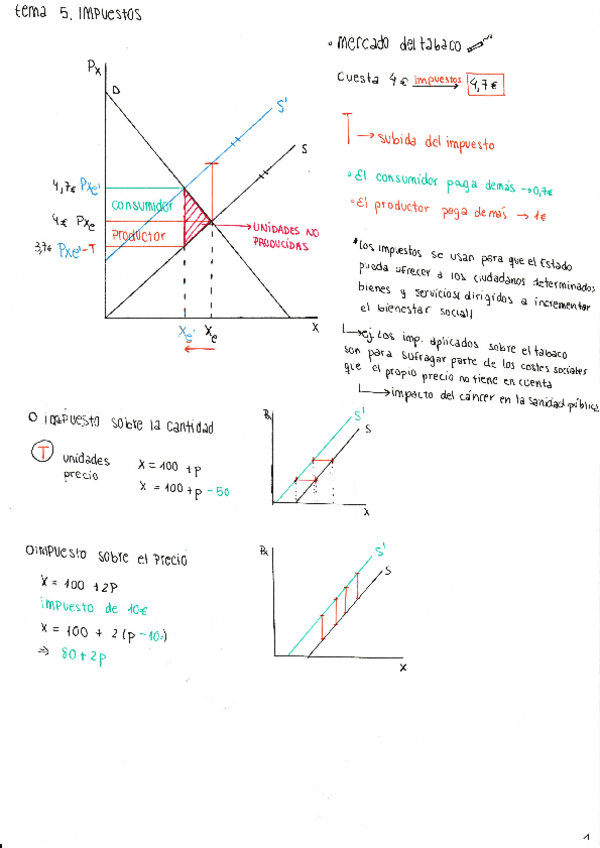 tema 5. IMPUESTOS
• mercado del tabaco
Cuesta 4€ impuestos 4,7€
T → subida del impuesto
• El consumidor paga demás → 0,7€
• El productor paga demás → 1€
*los impuestos se usan para que el Estado
pueda ofrecer a los ciudadanos determinados
bienes y servicios dirigidos a incrementar
el bienestar social
↳ ej. Los imp. aplicados sobre el tabaco
son para sufragar parte de los costes sociales
que el propio precio no tiene en cuenta
↳ impacto del cáncer en la sanidad pública
Px
D
S'
S
4,7€ Pxe'
consumidor
4€ Pxe
productor
3,7€ Pxe'-T
→ UNIDADES NO
PRODUCIDAS
Xe' Xe X
O IMPUESTO sobre la cantidad
T unidades
precio
X = 100 + p
X = 100 + p - 50
Px
S'
S
X
O IMPUESTO sobre el Precio
X = 100 + 2p
impuesto de 10€
X = 100 + 2 (p - 10)
⇒ 80 + 2p
Px
S'
S
X
1